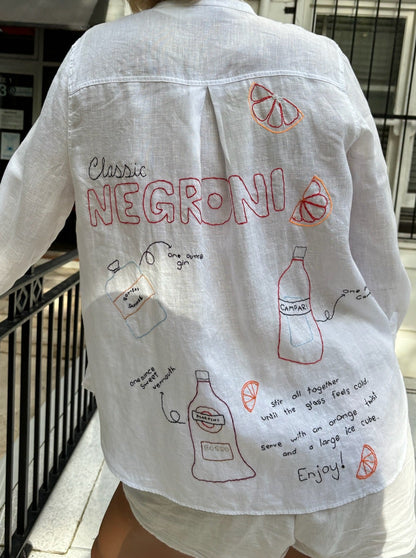 Classic
NEGRONI
one ounce
gin
CAMPARI
one
one ounce
sweet
vermouth
ROSSO
stir all together
until the glass feels cold.
serve with an orange twist
and a large ice cube.
Enjoy!